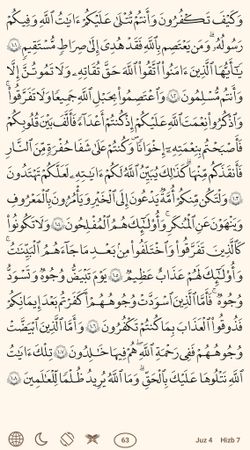 وَكَيْفَ تَكْفُرُونَ وَأَنتُمْ تُتْلَىٰ عَلَيْكُمْ ءَايَٰتُ ٱللَّهِ وَفِيكُمْ
رَسُولُهُۥ ۗ وَمَن يَعْتَصِم بِٱللَّهِ فَقَدْ هُدِىَ إِلَىٰ صِرَٰطٍ مُّسْتَقِيمٍ ١٠١
يَٰٓأَيُّهَا ٱلَّذِينَ ءَامَنُوا۟ ٱتَّقُوا۟ ٱللَّهَ حَقَّ تُقَاتِهِۦ وَلَا تَمُوتُنَّ إِلَّا
وَأَنتُم مُّسْلِمُونَ ١٠٢ وَٱعْتَصِمُوا۟ بِحَبْلِ ٱللَّهِ جَمِيعًا وَلَا تَفَرَّقُوا۟ ۚ
وَٱذْكُرُوا۟ نِعْمَتَ ٱللَّهِ عَلَيْكُمْ إِذْ كُنتُمْ أَعْدَآءً فَأَلَّفَ بَيْنَ قُلُوبِكُمْ
فَأَصْبَحْتُم بِنِعْمَتِهِۦٓ إِخْوَٰنًا وَكُنتُمْ عَلَىٰ شَفَا حُفْرَةٍ مِّنَ ٱلنَّارِ
فَأَنقَذَكُم مِّنْهَا ۗ كَذَٰلِكَ يُبَيِّنُ ٱللَّهُ لَكُمْ ءَايَٰتِهِۦ لَعَلَّكُمْ تَهْتَدُونَ
١٠٣ وَلْتَكُن مِّنكُمْ أُمَّةٌ يَدْعُونَ إِلَى ٱلْخَيْرِ وَيَأْمُرُونَ بِٱلْمَعْرُوفِ
وَيَنْهَوْنَ عَنِ ٱلْمُنكَرِ ۚ وَأُو۟لَٰٓئِكَ هُمُ ٱلْمُفْلِحُونَ ١٠٤ وَلَا تَكُونُوا۟
كَٱلَّذِينَ تَفَرَّقُوا۟ وَٱخْتَلَفُوا۟ مِنۢ بَعْدِ مَا جَآءَهُمُ ٱلْبَيِّنَٰتُ ۚ
وَأُو۟لَٰٓئِكَ لَهُمْ عَذَابٌ عَظِيمٌ ١٠٥ يَوْمَ تَبْيَضُّ وُجُوهٌ وَتَسْوَدُّ
وُجُوهٌ ۚ فَأَمَّا ٱلَّذِينَ ٱسْوَدَّتْ وُجُوهُهُمْ أَكَفَرْتُم بَعْدَ إِيمَٰنِكُمْ
فَذُوقُوا۟ ٱلْعَذَابَ بِمَا كُنتُمْ تَكْفُرُونَ ١٠٦ وَأَمَّا ٱلَّذِينَ ٱبْيَضَّتْ
وُجُوهُهُمْ فَفِى رَحْمَةِ ٱللَّهِ هُمْ فِيهَا خَٰلِدُونَ ١٠٧ تِلْكَ ءَايَٰتُ
ٱللَّهِ نَتْلُوهَا عَلَيْكَ بِٱلْحَقِّ ۗ وَمَا ٱللَّهُ يُرِيدُ ظُلْمًا لِّلْعَٰلَمِينَ ١٠٨
63 Juz 4 Hizb 7